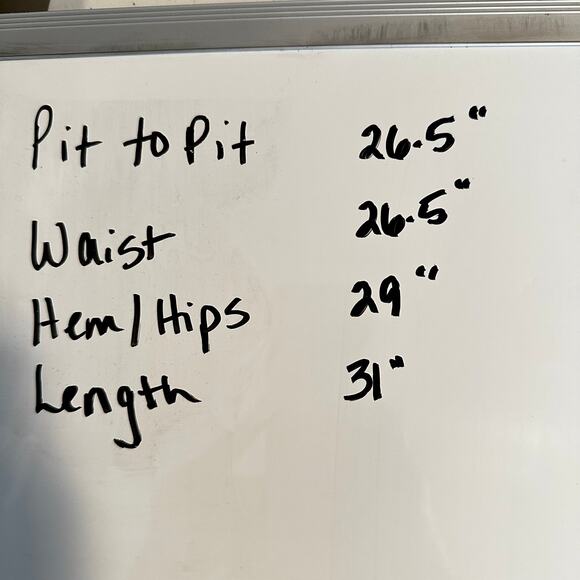 Pit to Pit 26.5"
Waist 26.5"
Hem/Hips 29"
Length 31"